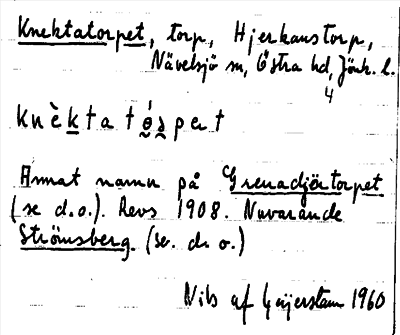 Knektatorpet, torp, Hjerkanstorp,
Nävelsjö sn, Östra hd, Jönk. l.
4
knèktatórpet
Annat namn på Grenadjörtorpet
(se d.o.). Revs 1908. Nuvarande
Strömsberg. (se. d. o.)
Nils af Geijerstam 1960